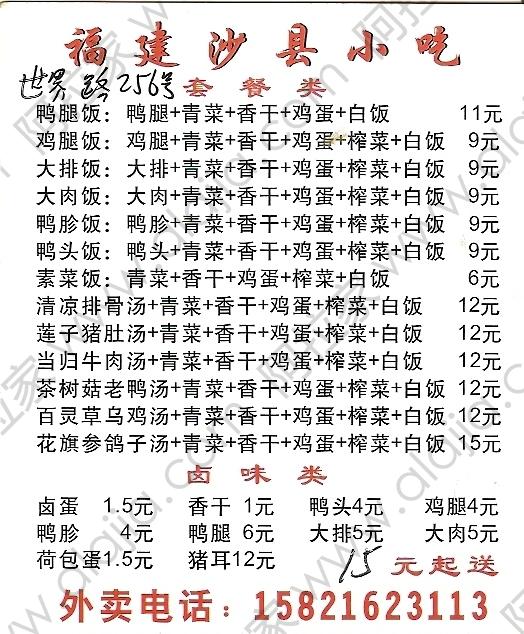 福建沙县小吃
世界路256号 套餐类
鸭腿饭：鸭腿+青菜+香干+鸡蛋+白饭 11元
鸡腿饭：鸡腿+青菜+香干+鸡蛋+榨菜+白饭 9元
大排饭：大排+青菜+香干+鸡蛋+榨菜+白饭 9元
大肉饭：大肉+青菜+香干+鸡蛋+榨菜+白饭 9元
鸭胗饭：鸭胗+青菜+香干+鸡蛋+榨菜+白饭 9元
鸭头饭：鸭头+青菜+香干+鸡蛋+榨菜+白饭 9元
素菜饭：青菜+香干+鸡蛋+榨菜+白饭 6元
清凉排骨汤+青菜+香干+鸡蛋+榨菜+白饭 12元
莲子猪肚汤+青菜+香干+鸡蛋+榨菜+白饭 12元
当归牛肉汤+青菜+香干+鸡蛋+榨菜+白饭 12元
茶树菇老鸭汤+青菜+香干+鸡蛋+榨菜+白饭 12元
百灵草乌鸡汤+青菜+香干+鸡蛋+榨菜+白饭 12元
花旗参鸽子汤+青菜+香干+鸡蛋+榨菜+白饭 15元
卤味类
卤蛋 1.5元 香干 1元 鸭头4元 鸡腿4元
鸭胗 4元 鸭腿 6元 大排5元 大肉5元
荷包蛋1.5元 猪耳12元 15元起送
外卖电话：15821623113